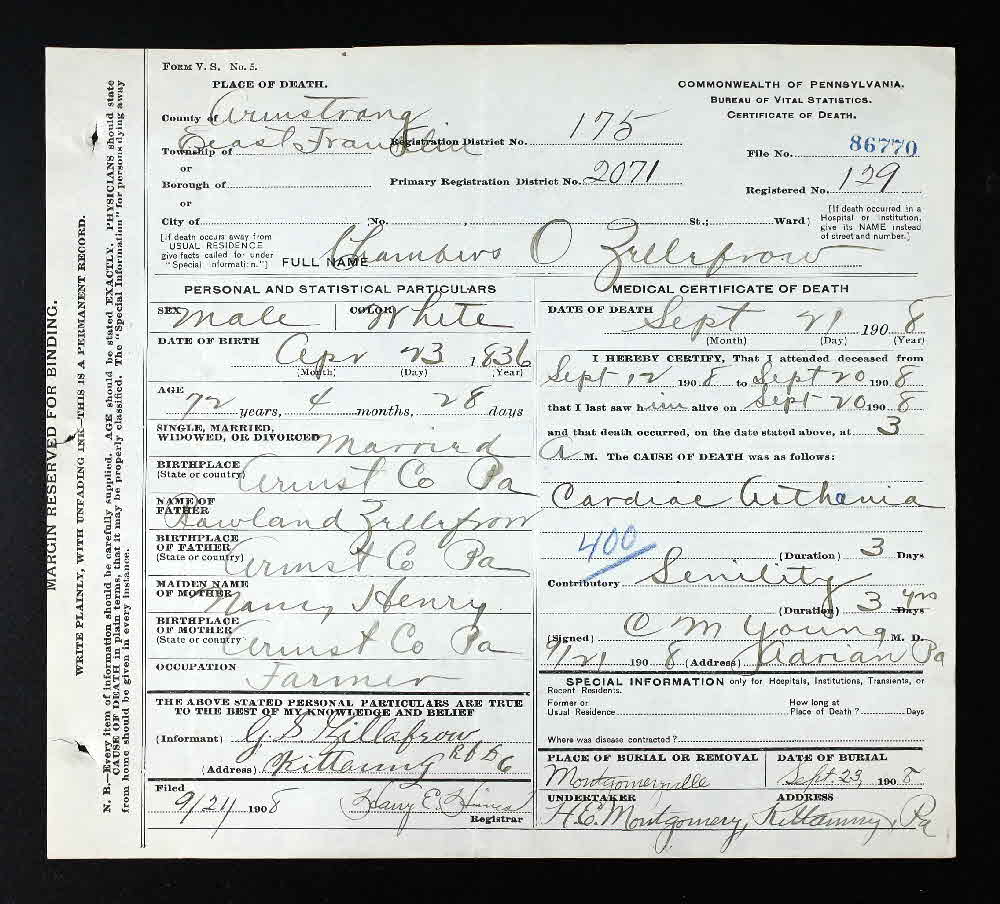 FORM V. S. No. 5.
PLACE OF DEATH.
County of Armstrong
Township of East Franklin
or
Borough of
or
City of No. , St.; Ward)
Registration District No. 175
Primary Registration District No. 2071
COMMONWEALTH OF PENNSYLVANIA.
BUREAU OF VITAL STATISTICS.
CERTIFICATE OF DEATH.
File No. 86770
Registered No. 129
[If death occurs away from USUAL RESIDENCE give facts called for under "Special Information."]
[If death occurred in a Hospital or institution, give its NAME instead of street and number.]
FULL NAME Chambers O Zellefrow
MARGIN RESERVED FOR BINDING.
WRITE PLAINLY, WITH UNFADING INK—THIS IS A PERMANENT RECORD.
N. B.—Every item of information should be carefully supplied. AGE should be stated EXACTLY. PHYSICIANS should state
CAUSE OF DEATH in plain terms, that it may be properly classified. The "Special Information" for persons dying away
from home should be given in every instance.
PERSONAL AND STATISTICAL PARTICULARS
SEX Male COLOR White
DATE OF BIRTH Apr 23 1836
(Month) (Day) (Year)
AGE 72 years, 4 months, 28 days
SINGLE, MARRIED,
WIDOWED, OR DIVORCED Married
BIRTHPLACE
(State or country) Armst Co Pa
NAME OF
FATHER Howland Zellefrow
BIRTHPLACE
OF FATHER
(State or country) Armst Co Pa
MAIDEN NAME
OF MOTHER Nancy Henry
BIRTHPLACE
OF MOTHER
(State or country Armst Co Pa
OCCUPATION
Farmer
THE ABOVE STATED PERSONAL PARTICULARS ARE TRUE
TO THE BEST OF MY KNOWLEDGE AND BELIEF
(Informant) G. S Killafrow
(Address) Kittanning R D 6
Filed
9/24 1908 Harry E. Himes
Registrar
MEDICAL CERTIFICATE OF DEATH
DATE OF DEATH Sept 21 1908
(Month) (Day) (Year)
I HEREBY CERTIFY, That I attended deceased from
Sept 12 1908 to Sept 20 1908
that I last saw him alive on Sept 20 1908
and that death occurred, on the date stated above, at 3
A M. The CAUSE OF DEATH was as follows:
Cardiac Asthenia
400 (Duration) 3 Days
Contributory Senility
(Duration) 3 yrs Days
(Signed) C M Young M. D.
9/21 1908 (Address) Adrian Pa
SPECIAL INFORMATION only for Hospitals, Institutions, Transients, or
Recent Residents.
Former or
Usual Residence
How long at
Place of Death? Days
Where was disease contracted?
PLACE OF BURIAL OR REMOVAL
Montgomeryville
DATE OF BURIAL
Sept. 23, 1908
UNDERTAKER
H. E. Montgomery,
ADDRESS
Kittanning, Pa